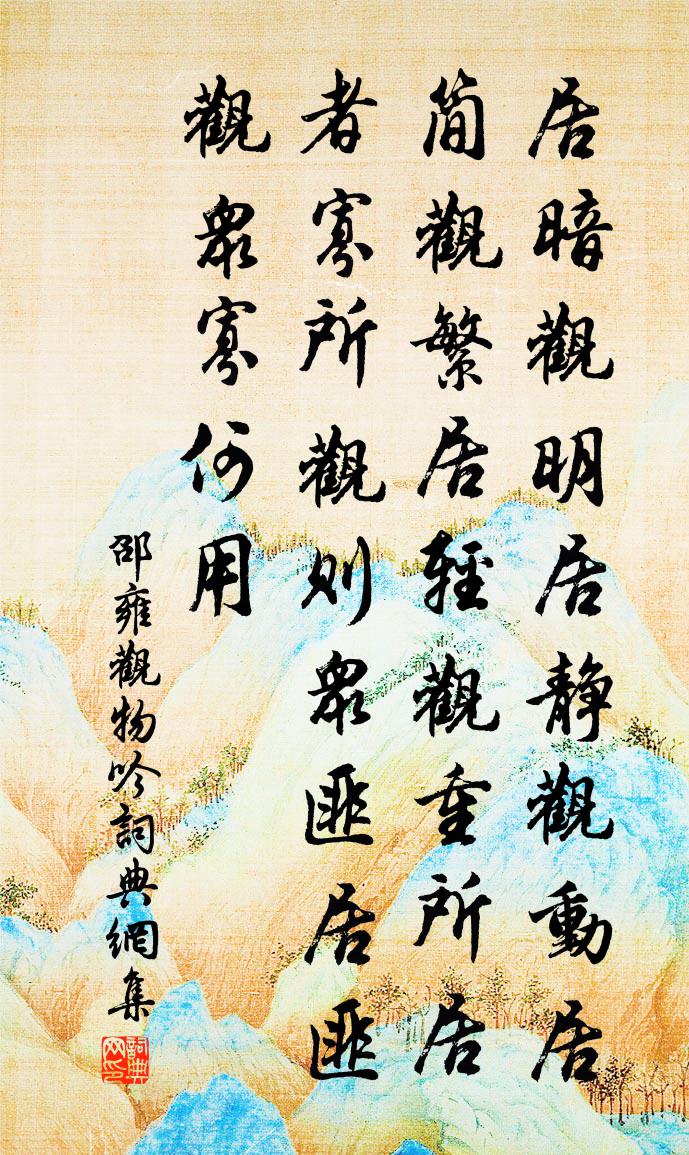 居暗觀明居静觀動居
简觀繁居輕觀重所居
者寡所觀则眾匪居匪
觀眾寡何用
邵雍觀物吟詞典網集
詞典
网印